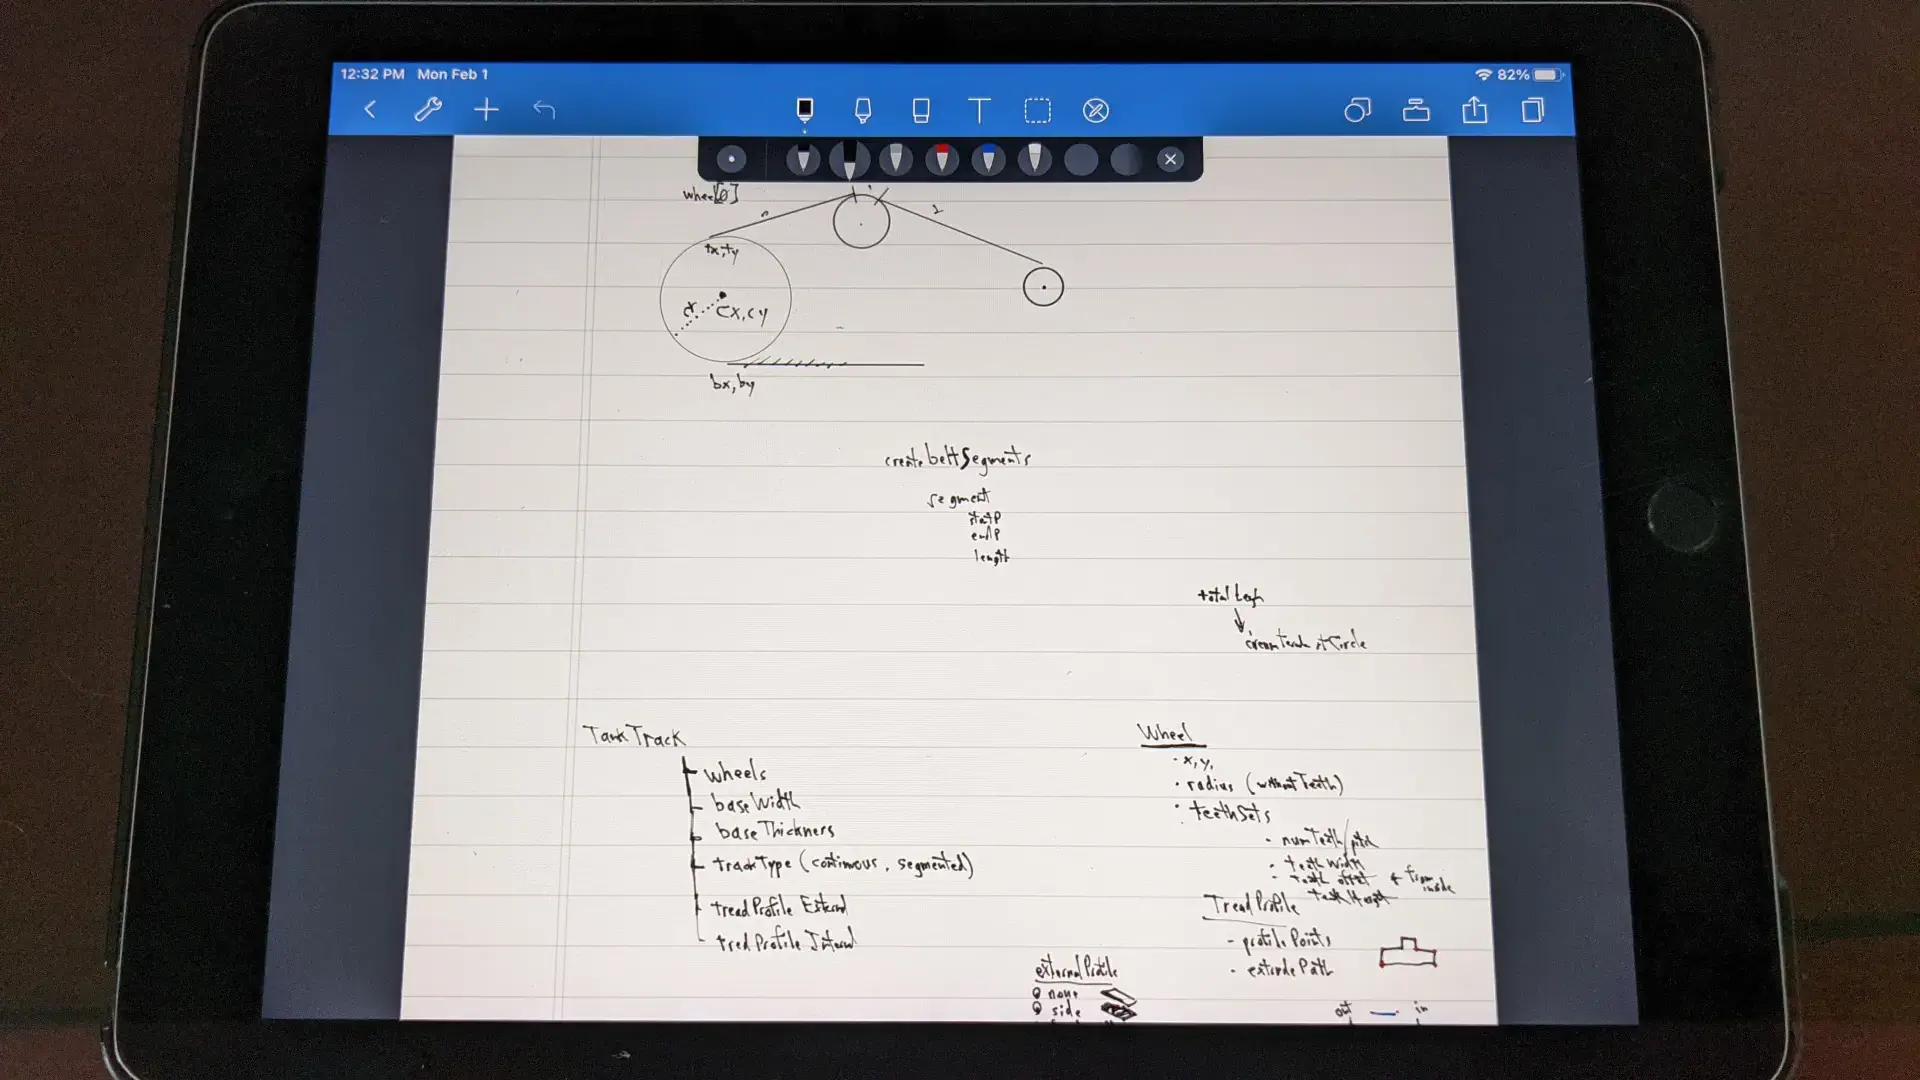 12:32 PM Mon Feb 1
82%
wheel[0]
0
1
2
tx,ty
r
cx,cy
bx,by
create beltSegments
segment
startP
endP
length
total
Circle
TankTrack
wheels
baseWidth
baseThickness
trackType (continuous, segmented)
treadProfile External
tredProfile Internal
Wheel
· x,y,
· radius (without Teeth)
· teethSets
- numTeeth/pitch
- teeth Width
- tooth offset ← from inside
tooth Height
TreadProfile
- profile Points
- extrude Path
externalProfile
none
side
out
in